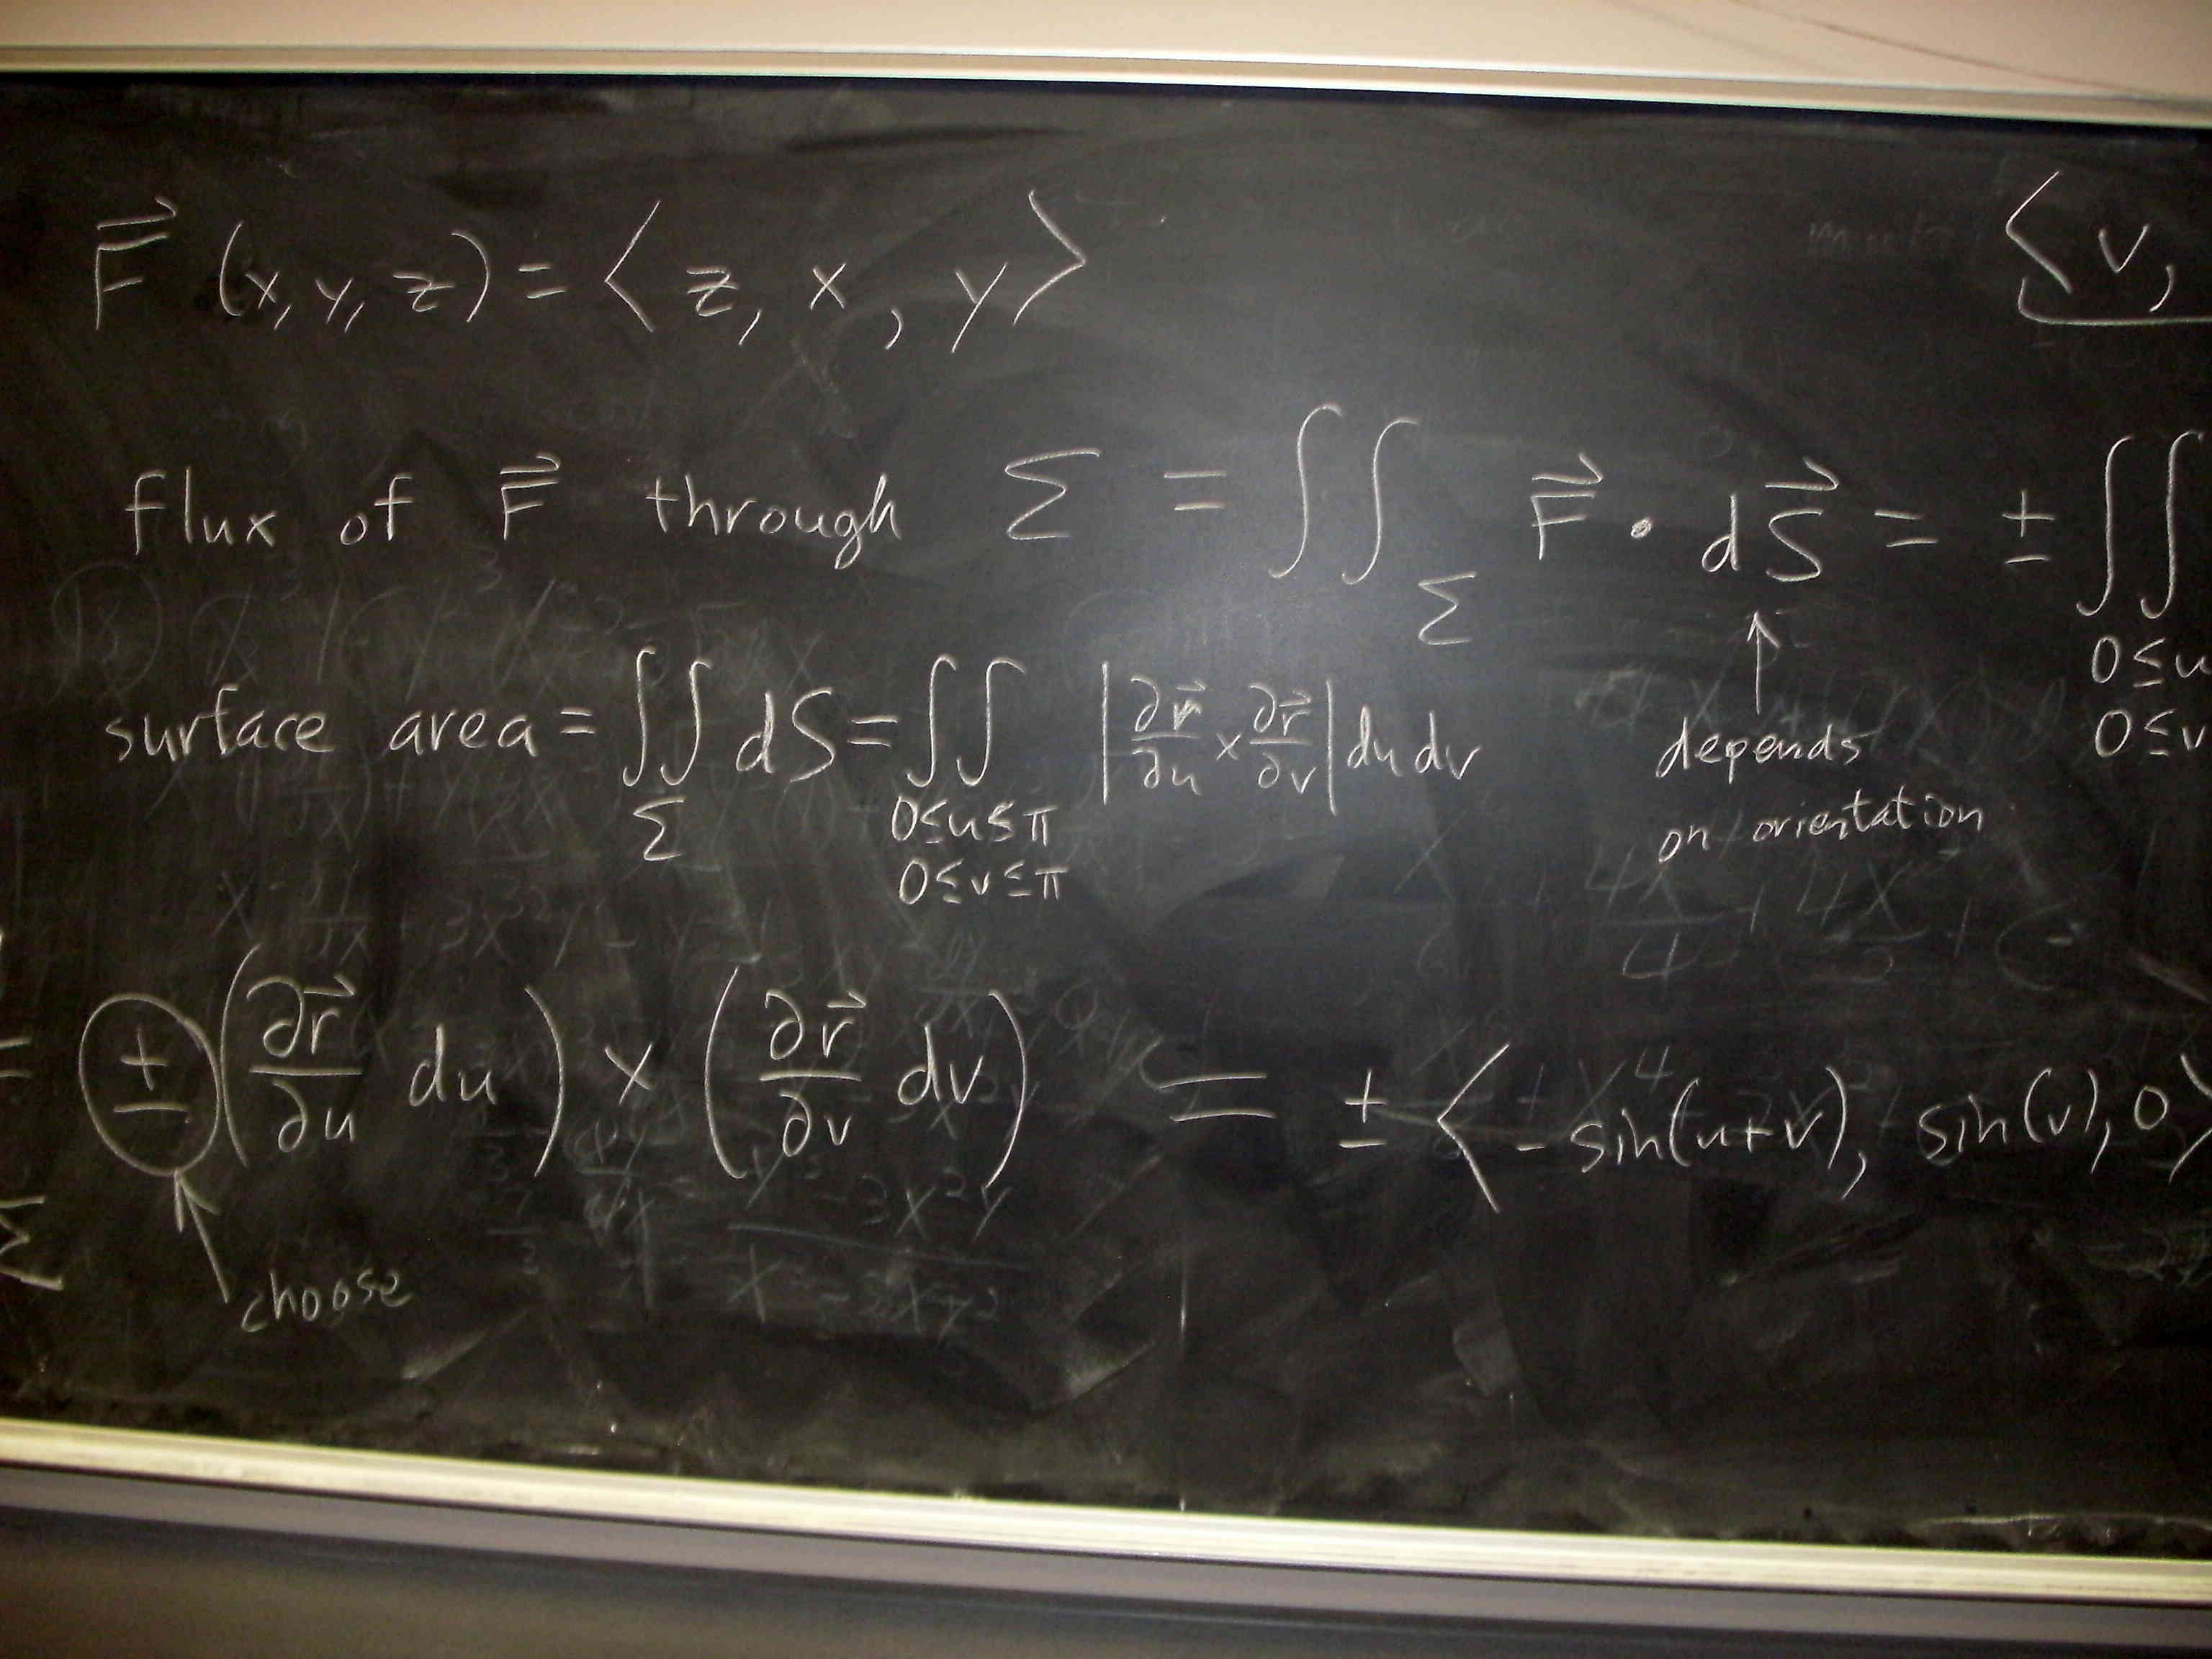 F⃗ (x, y, z) = ⟨ z, x, y ⟩
⟨ v,
flux of F⃗ through Σ = ∬_Σ F⃗ • dS⃗ = ± ∬
0≤u
0≤v
↑
depends
on orientation
surface area = ∬_Σ dS = ∬ |∂r⃗/∂u × ∂r⃗/∂v| du dv
0≤u≤π
0≤v≤π
± (∂r⃗/∂u du) × (∂r⃗/∂v dv) = ± ⟨ -sin(u+v), sin(v), 0 ⟩
choose